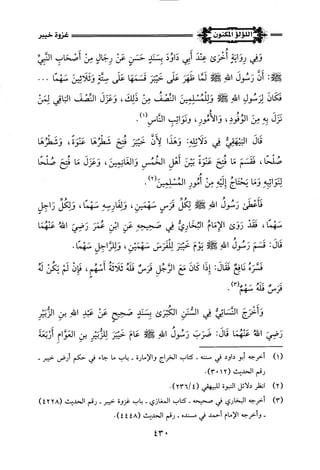 اللؤلؤ المكنون
غزوة خيبر
وَفِي رِوَايَةٍ أُخْرَى عِنْدَ أَبِي دَاوُدَ بِسَنَدٍ حَسَنٍ عَنْ رِجَالٍ مِنْ أَصْحَابِ النَّبِيِّ
ﷺ: أَنَّ رَسُولَ اللهِ ﷺ لَمَّا ظَهَرَ عَلَى خَيْبَرَ قَسَمَهَا عَلَى سِتَّةٍ وَثَلَاثِينَ سَهْمًا ...
فَكَانَ لِرَسُولِ اللهِ ﷺ وَلِلْمُسْلِمِينَ النِّصْفُ مِنْ ذَلِكَ، وَعَزَلَ النِّصْفَ البَاقِي لِمَنْ
نَزَلَ بِهِ مِنَ الوُفُودِ، وَالأُمُورِ، وَنَوَائِبِ النَّاسِ(١).
قَالَ البَيْهَقِيُّ فِي دَلَائِلِهِ: وَهَذَا لِأَنَّ خَيْبَرَ فُتِحَ شَطْرُهَا عَنْوَةً، وَشَطْرُهَا
صُلْحًا، فَقَسَمَ مَا فُتِحَ عَنْوَةً بَيْنَ أَهْلِ الخُمُسِ وَالغَانِمِينَ، وَعَزَلَ مَا فُتِحَ صُلْحًا
لِنَوَائِبِهِ وَمَا يَحْتَاجُ إِلَيْهِ مِنْ أُمُورِ المُسْلِمِينَ(٢).
فَأَعْطَى رَسُولُ اللهِ ﷺ لِكُلِّ فَرَسٍ سَهْمَيْنِ، وَلِفَارِسِهِ سَهْمًا، وَلِكُلِّ رَاجِلٍ
سَهْمًا، فَقَدْ رَوَى الإِمَامُ البُخَارِيُّ فِي صَحِيحِهِ عَنِ ابْنِ عُمَرَ رَضِيَ اللهُ عَنْهُمَا
قَالَ: قَسَمَ رَسُولُ اللهِ ﷺ يَوْمَ خَيْبَرَ لِلْفَرَسِ سَهْمَيْنِ، وَلِلرَّاجِلِ سَهْمًا.
فَسَّرَهُ نَافِعٌ فَقَالَ: إِذَا كَانَ مَعَ الرَّجُلِ فَرَسٌ فَلَهُ ثَلَاثَةُ أَسْهُمٍ، فَإِنْ لَمْ يَكُنْ لَهُ
فَرَسٌ فَلَهُ سَهْمٌ(٣).
وَأَخْرَجَ النَّسَائِيُّ فِي السُّنَنِ الكُبْرَى بِسَنَدٍ صَحِيحٍ عَنْ عَبْدِ اللهِ بنِ الزُّبَيْرِ
رَضِيَ اللهُ عَنْهُمَا قَالَ: ضَرَبَ رَسُولُ اللهِ ﷺ عَامَ خَيْبَرَ لِلزُّبَيْرِ بنِ العَوَّامِ أَرْبَعَةَ
(١) أخرجه أبو داود في سننه ـ كتاب الخراج والإمارة ـ باب ما جاء في حكم أرض خيبر ـ
رقم الحديث (٣٠١٢).
(٢) انظر دلائل النبوة للبيهقي (٢٣٦/٤).
(٣) أخرجه البخاري في صحيحه ـ كتاب المغازي ـ باب غزوة خيبر ـ رقم الحديث (٤٢٢٨)
ـ وأخرجه الإمام أحمد في مسنده ـ رقم الحديث (٤٤٤٨).
٤٣٠